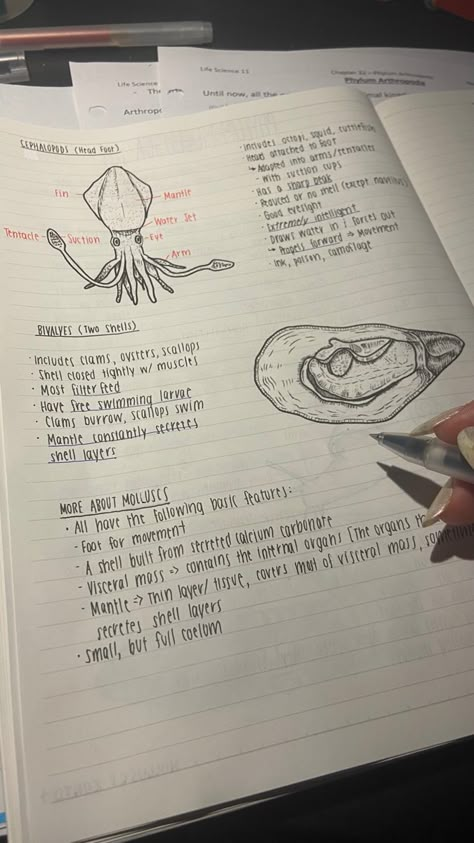 Life Science
Life Science 11
Phylum Arthropoda
Until now, all the
CEPHALOPODS (Head Foot)
Fin
Mantle
Water Jet
Tentacle
Suction
Eye
Arm
· includes octopi, squid, cuttlefish
· Head attached to foot
↳ Adapted into arms/tentacles
- With suction cups
· Has a sharp beak
· Reduced or no shell (except nautilus)
· Good eyesight
· Extremely intelligent
· Draws water in & forces out
↳ Propels forward => Movement
· Ink, poison, camoflage
BIVALVES (Two Shells)
· Includes clams, oysters, scallops
· Shell closed tightly w/ muscles
· Most filter feed
· Have free swimming larvae
· Clams burrow, scallops swim
· Mantle constantly secretes
shell layers
MORE ABOUT MOLLUSCS
· All have the following basic features:
- Foot for movement
- A shell built from secreted calcium carbonate
- Visceral mass => contains the internal organs [The organs
- Mantle => Thin layer/tissue, covers most of visceral mass,
secretes shell layers
· small, but full coelom